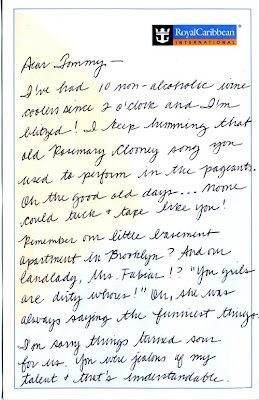 RoyalCaribbean
INTERNATIONAL
Dear Tommy —
I've had 10 non-alcoholic wine
coolers since 2 o'clock and I'm
blitzed! I keep humming that
old Rosemary Clooney song you
used to perform in the pageants.
Oh the good old days... no one
could tuck + tape like you!
Remember our little basement
apartment in Brooklyn? And our
landlady, Mrs. Fabian!? "You girls
are dirty whores!" Oh, she was
always saying the funniest things.
I'm sorry things turned sour
for us. You were jealous of my
talent + that's understandable.